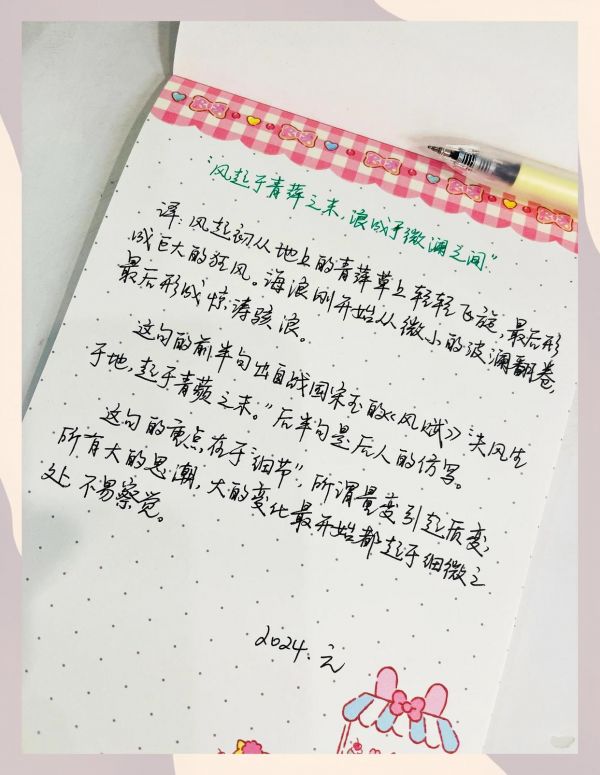 "风起于青萍之末，浪成于微澜之间"
译：风起初从地上的青萍草上轻轻飞旋，最后形
成巨大的狂风。海浪刚开始从微小的波澜翻卷，
最后形成惊涛骇浪。
这句的前半句出自战国宋玉的《风赋》"夫风生
于地，起于青蘋之末。"后半句是后人的仿写。
这句的重点在于"细节"，所谓量变引起质变，
所有大的思潮，大的变化最开始都起于细微之
处，不易察觉。
2024.元